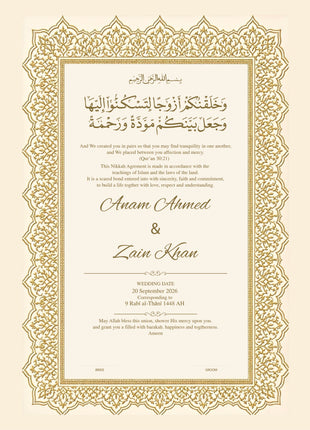 بسم الله الرحمن الرحيم
وَخَلَقْنَكُمْ أَزْوَجًا لِتَسْكُنُوٓا إِلَيْهَا
وَجَعَلَ بَيْنَكُم مَوَدَّةً وَرَحْمَةً
And We created you in pairs so that you may find tranquility in one another,
and We placed between you affection and mercy.
(Qur'an 30:21)
This Nikkah Agreement is made in accordance with the
teachings of Islam and the laws of the land.
It is a scared bond entered into with sincerity, faith and commitment,
to build a life togther with love, respect and understanding
Anam Ahmed
&
Zain Khan
WEDDING DATE
20 September 2026
Corresponding to
9 Rabī al-Thānī 1448 AH
May Allah bless this union, shower His mercy upon you,
and grant you a filled with barakah, happiness and togtherness.
Ameen
BRIDE
GROOM